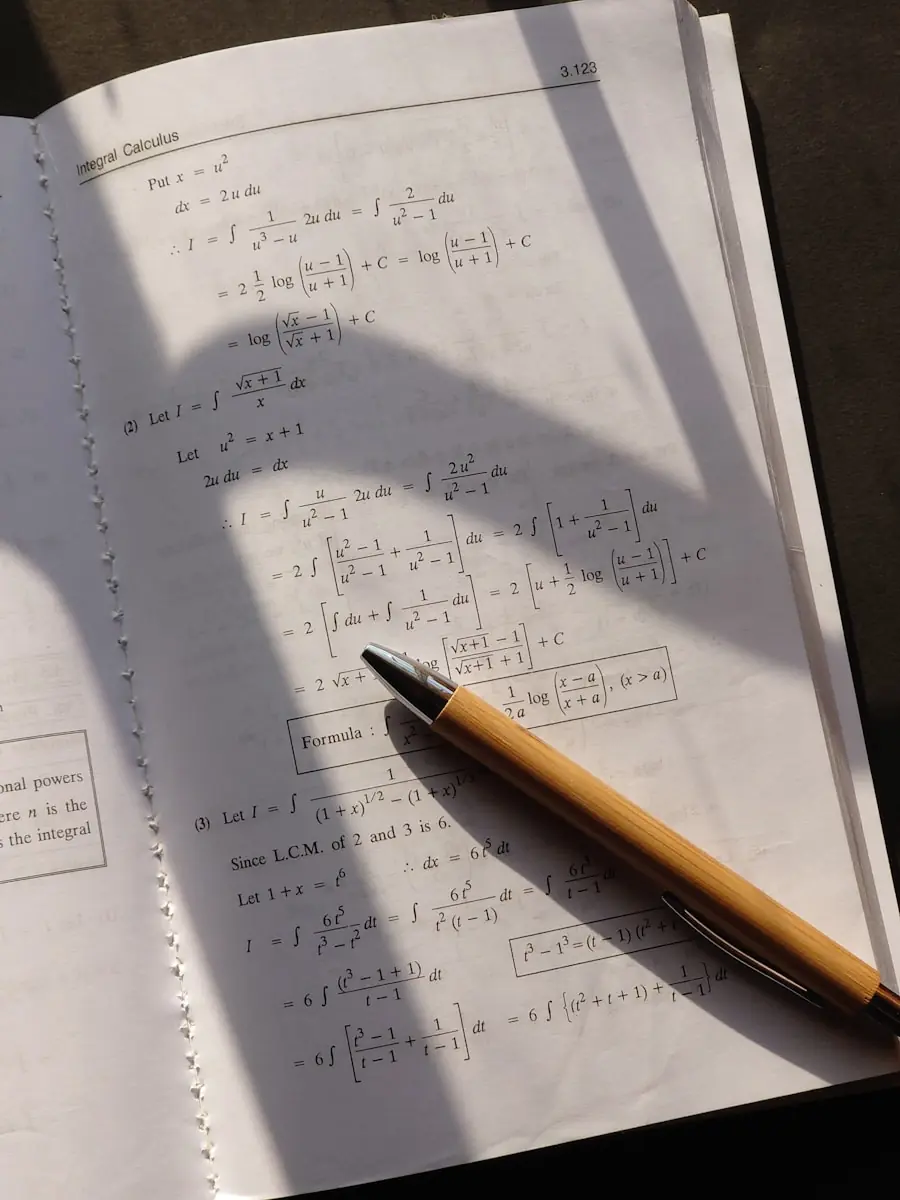 3.123
Integral Calculus
Put x = u²
dx = 2u du
∴ I = ∫ 1/(u³ − u) 2u du = ∫ 2/(u² − 1) du
= 2 1/2 log ((u − 1)/(u + 1)) + C = log ((u − 1)/(u + 1)) + C
= log ((√x − 1)/(√x + 1)) + C
(2) Let I = ∫ √(x + 1)/x dx
Let u² = x + 1
2u du = dx
∴ I = ∫ u/(u² − 1) 2u du = ∫ 2u²/(u² − 1) du
= 2 ∫ [(u² − 1)/(u² − 1) + 1/(u² − 1)] du = 2 ∫ [1 + 1/(u² − 1)] du
= 2 [∫ du + ∫ 1/(u² − 1) du] = 2 [u + 1/2 log ((u − 1)/(u + 1))] + C
= 2 √x + log [(√(x+1) − 1)/(√(x+1) + 1)] + C
Formula : ∫ x² 1/2a log ((x − a)/(x + a)), (x > a)
(3) Let I = ∫ 1/((1 + x)^1/2 − (1 + x)^1/
Since L.C.M. of 2 and 3 is 6.
Let 1 + x = t⁶ ∴ dx = 6t⁵ dt
I = ∫ 6t⁵/(t³ − t²) dt = ∫ 6t⁵/(t² (t − 1)) dt = ∫ 6t³/(t − 1) dt
t³ − 1³ = (t − 1) (t² +
= 6 ∫ (t³ − 1 + 1)/(t − 1) dt
= 6 ∫ [(t³ − 1)/(t − 1) + 1/(t − 1)] dt = 6 ∫ {(t² + t + 1) + 1/(t − 1)} dt
onal powers
ere n is the
s the integral